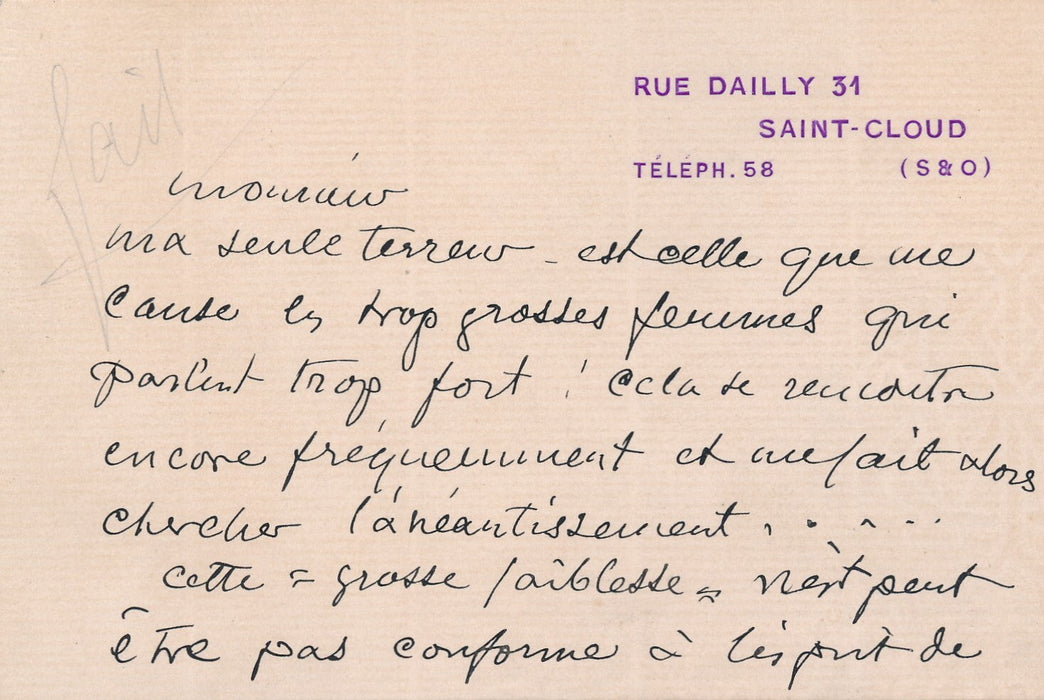 fait
RUE DAILLY 31
SAINT-CLOUD
TÉLÉPH. 58 (S & O)
monsieur
ma seule terreur - est celle que me
cause les trop grosses femmes qui
parlent trop fort ! cela se rencontre
encore fréquemment et me fait alors
chercher l'anéantissement . . . . .
cette = grosse faiblesse = n'est peut
être pas conforme à l'esprit de